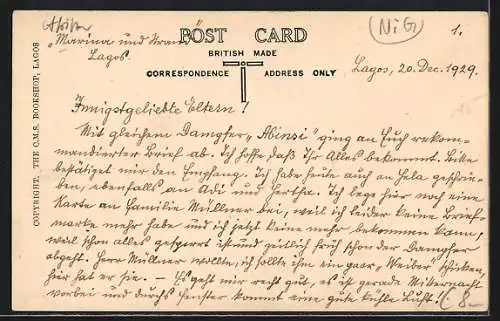 Afrika
(NiG)
1.
"Marina und Strand,
Lagos.
POST CARD
BRITISH MADE
CORRESPONDENCE
ADDRESS ONLY
COPYRIGHT, THE C.M.S. BOOKSHOP, LAGOS
Lagos, 20. Dec. 1929.
Innigstgeliebte Eltern!
Mit gleichem Dampfer "Abinsi" ging an Euch rekom-
mandierter Brief ab. Ich hoffe daß Ihr Alles bekommt. Bitte
bestätiget mir den Empfang. Ich habe heute auch an Hela geschrie-
ben, ebenfalls an Adi und Hertha. Ich lege hier noch eine
Karte an Familie Müllner bei, weil ich leider keine Brief-
marke mehr habe und ich jetzt keine mehr bekommen kann,
weil schon alles gesperrt ist und zeitlich früh schon der Dampfer
abgeht. Herr Müllner wollte, ich sollte ihm ein paar "Weiber" schicken,
hier hat er sie. – Es geht mir recht gut, es ist gerade Mitternacht
vorbei und durchs Fenster kommt eine gute kühle Luft!